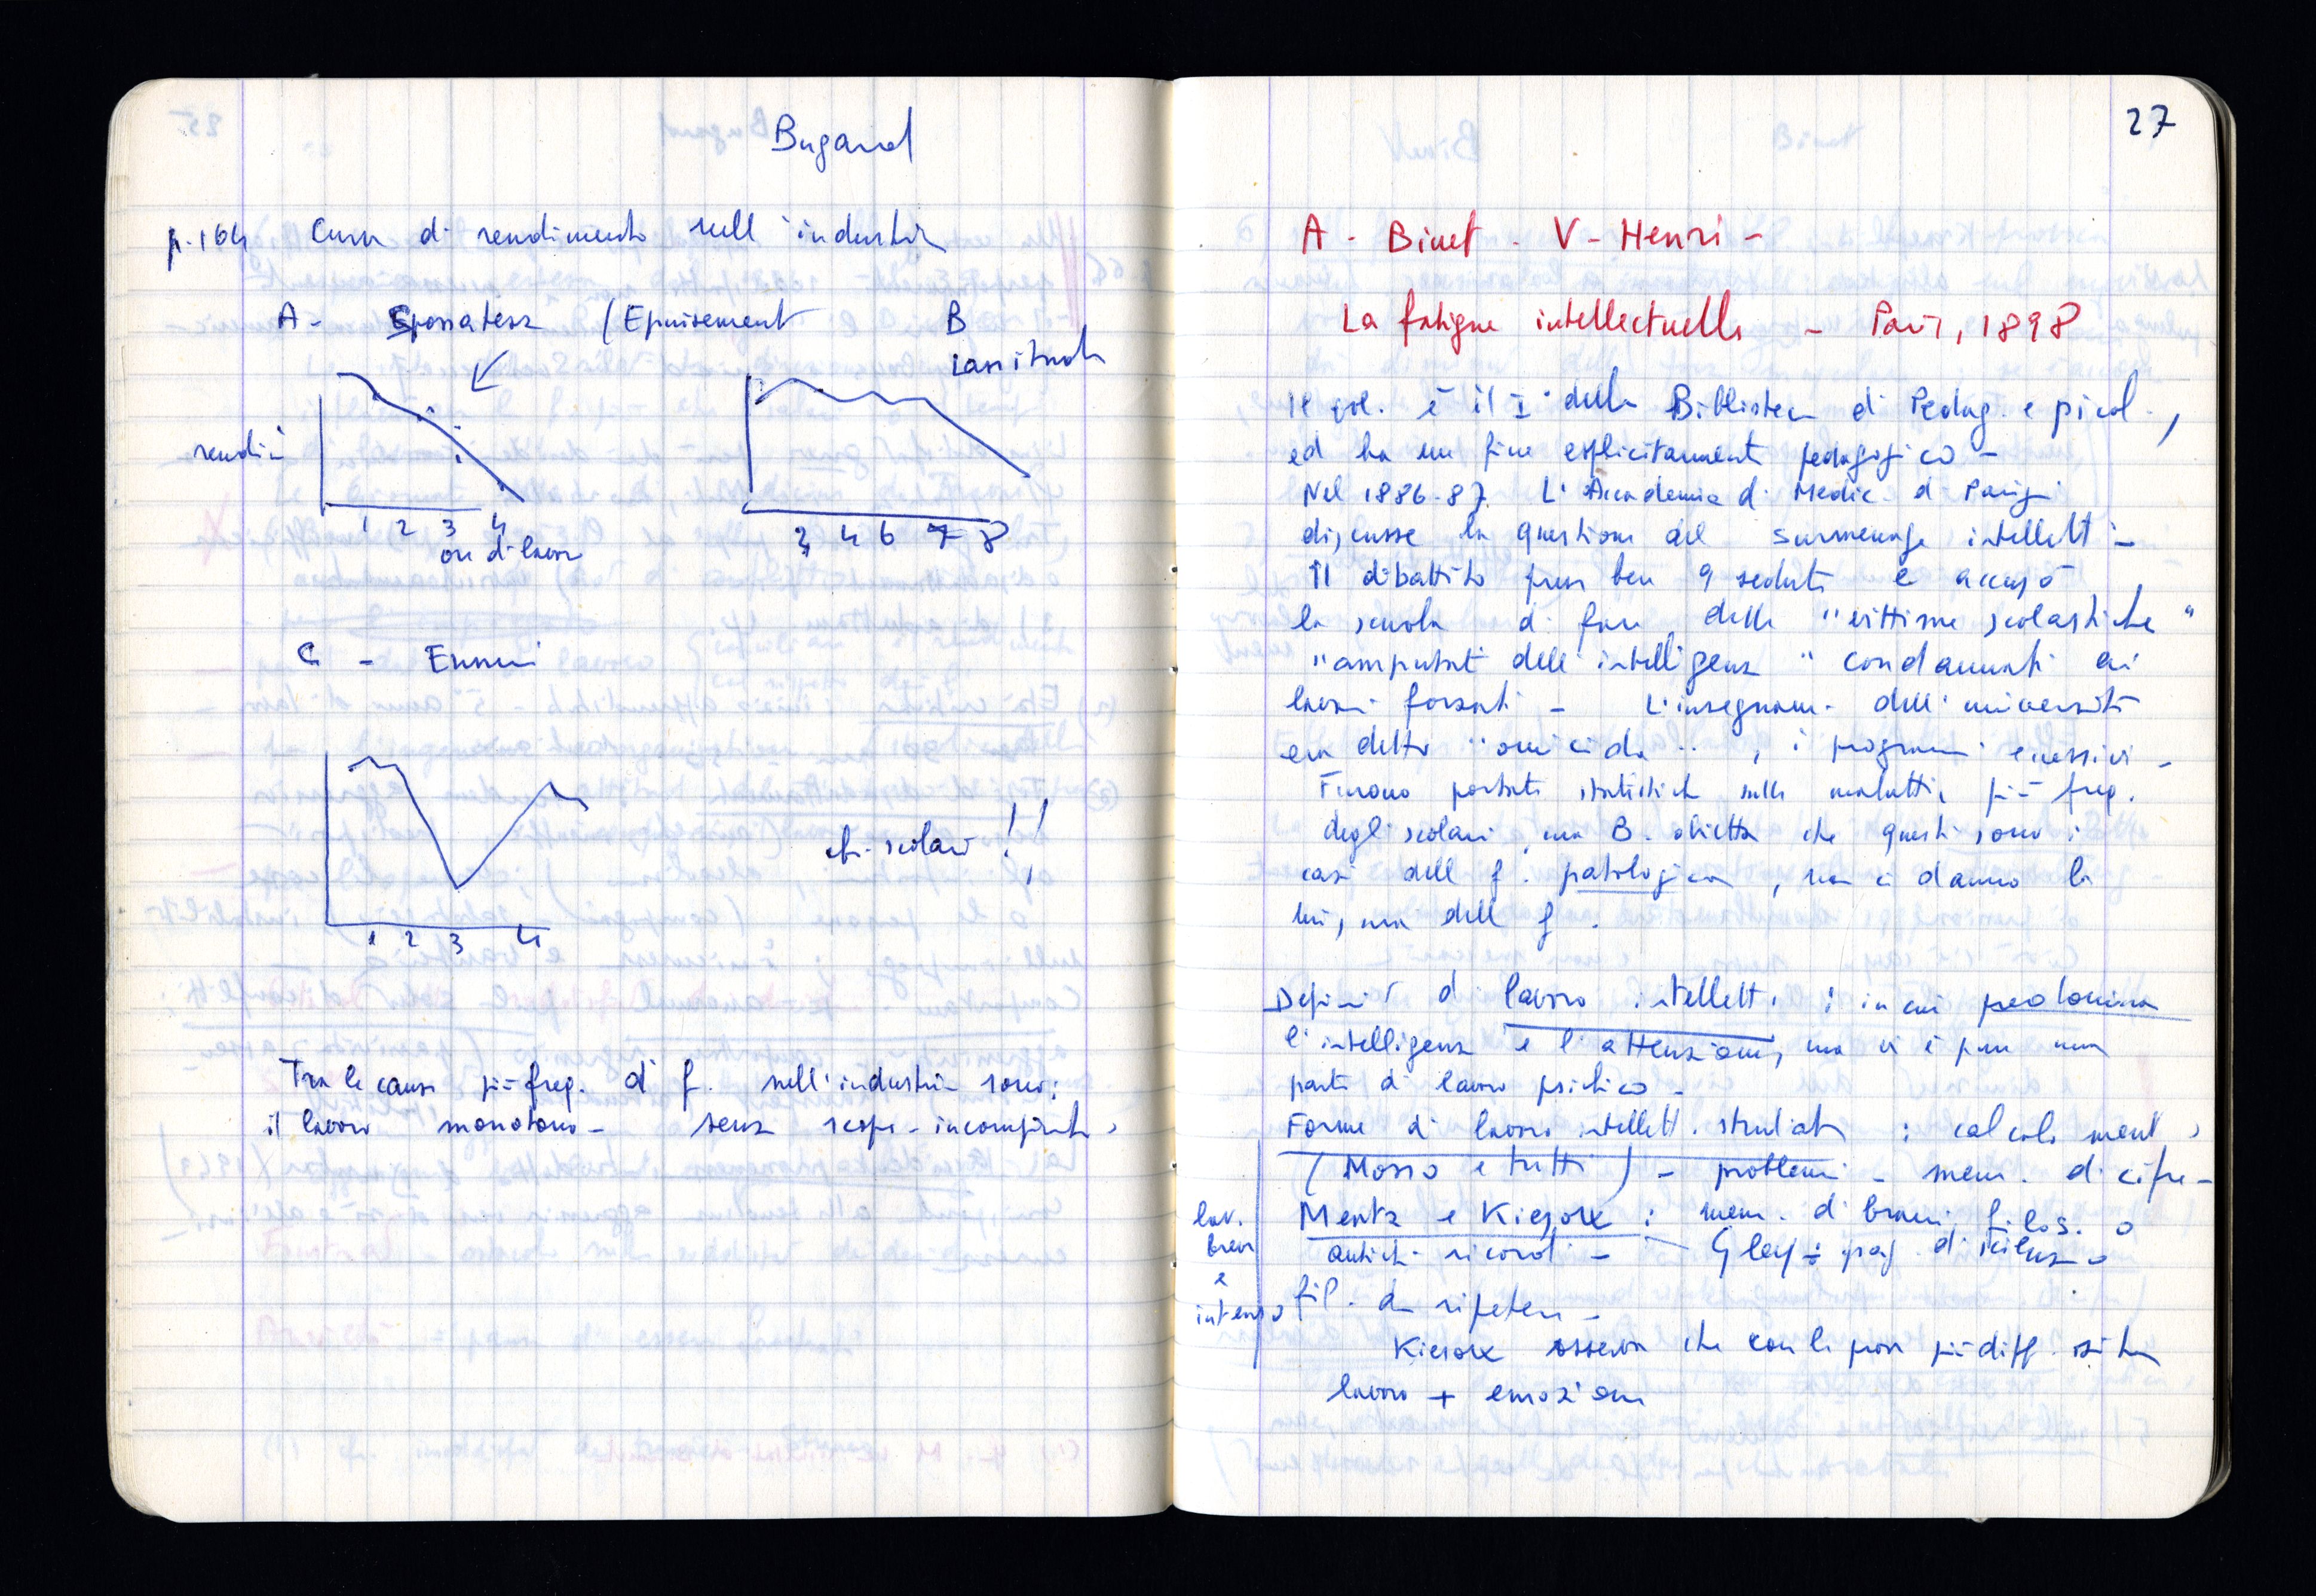 Bugard
p. 164 Curva di rendimento nell'industria
A - Spossatezza (Epuisement
B
Lassitude
rendim
1 2 3 4
ore di lavoro
3 4 6 7 8
C - Ennui
scolari !!
1 2 3 4
Tra le cause più freq. di f. nell'industria sono:
il lavoro monotono - senza scopo - incompiuto.
27
A - Binet - V - Henri -
La fatigue intellectuelle - Paris, 1898
Il vol. è il I° della Biblioteca di Pedag. e psicol.,
ed ha un fine esplicitamente pedagogico -
Nel 1886-87 L'Accademia di Medic. di Parigi
discusse la questione del surmenage intellett -
Il dibattito prese ben 9 sedute e accusò
la scuola di fare delle "vittime scolastiche"
"amputati dell'intelligenza" condannati ai
lavori forzati - L'insegnam. dell'università
era detto "omicida", i programmi eccessivi -
Furono portate statistiche sulle malattie più freq.
degli scolari, ma B. obietta che questi sono i
casi della f. patologica, non ci danno la
 della f.
Definiz di lavoro intellett. : in cui predomina
l'intelligenza e l'attenzione, ma vi è pure una
parte di lavoro psichico -
Forme di lavoro intellett. studiate : calcolo ment,
(Mosso e tutti) - problemi - mem. di cifre -
Mentz e Kiesow : mem. di brani filos. o
antichi ricordi - Gley : pag. di scienza o
fil. da ripetere -
lav.
breve
e
intenso
Kiesow osserva che con le prove più diff. si ha
lavoro + emozione